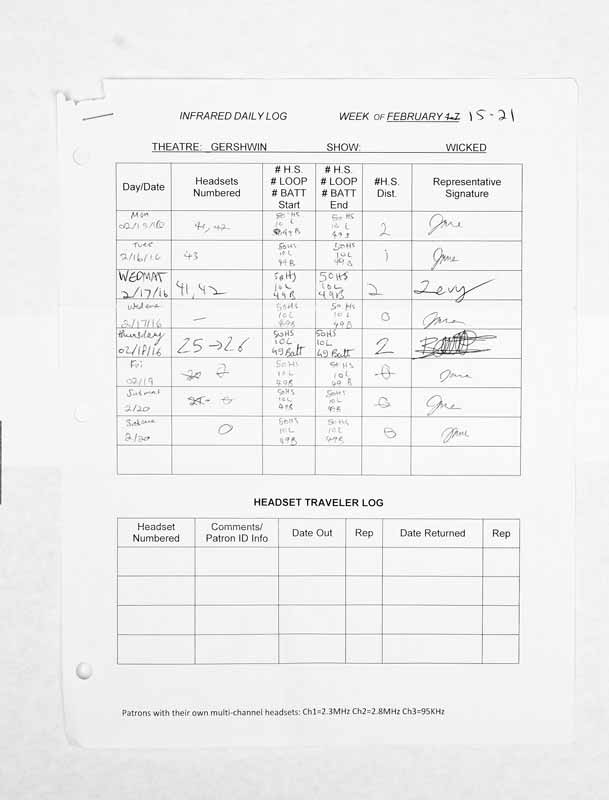 INFRARED DAILY LOG WEEK OF FEBRUARY 15-21
THEATRE: GERSHWIN SHOW: WICKED
Day/Date
Headsets
Numbered
# H.S.
# LOOP
# BATT
Start
# H.S.
# LOOP
# BATT
End
#H.S.
Dist.
Representative
Signature
Mon
41, 42
50 HS
10 L
49 B
50 HS
10 L
49 B
2
Jane
Tues
2/16/16
43
50HS
10L
49B
50HS
10L
49B
1
Jane
WEDMAT
2/17/16
41, 42
50HS
10L
49B
50HS
10L
49B
2
2/17/16
—
50HS
10L
49B
50HS
10L
49B
0
Jane
Thursday
02/18/16
25→26
50HS
10L
49Batt
50HS
10L
49Batt
2
Fri
02/19
50HS
10L
49B
50 HS
10L
49B
0
Jane
Satmat
2/20
50HS
10L
49B
50HS
10L
49B
0
Jane
Sateve
2/20
0
50HS
10L
49B
50HS
10L
49B
0
Jane
HEADSET TRAVELER LOG
Headset
Numbered
Comments/
Patron ID Info
Date Out
Rep
Date Returned
Rep
Patrons with their own multi-channel headsets: Ch1=2.3MHz Ch2=2.8MHz Ch3=95KHz